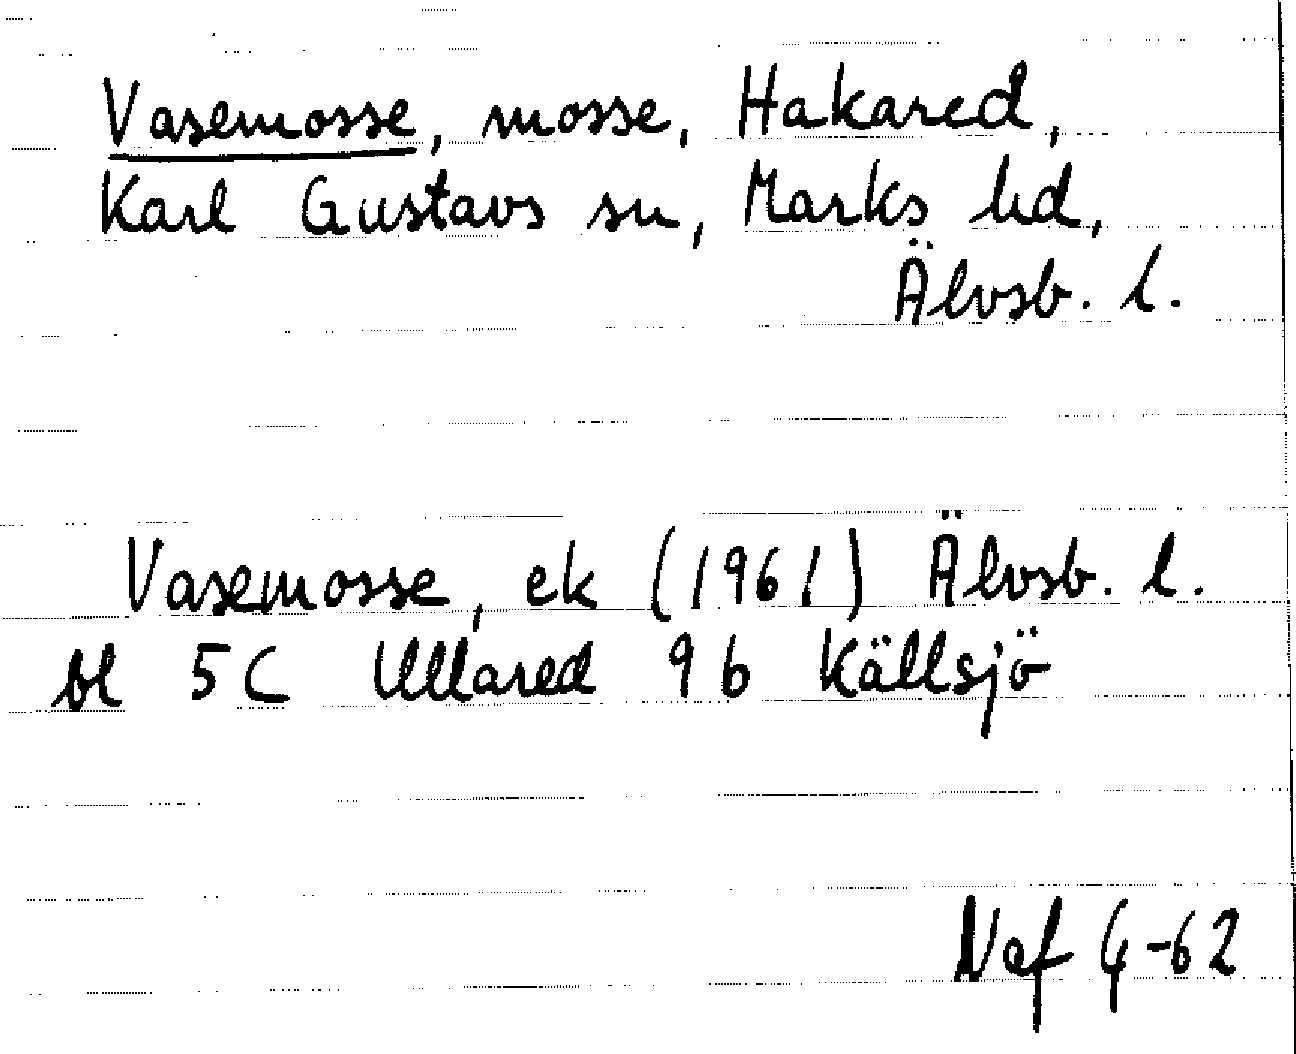 Vasemosse, mosse, Hakared,
Karl Gustavs sn, Marks hd,
Älvsb. l.
Vasemosse, ek (1961) Älvsb. l.
bl 5C Ullared 9b Källsjö
Naf 4-62